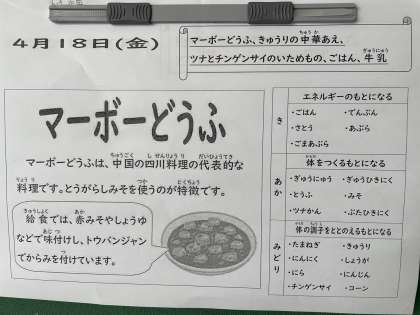 4月18日(金)
マーボーどうふ、きゅうりの中華あえ、
ツナとチンゲンサイのいためもの、ごはん、牛乳
マーボーどうふ
マーボーどうふは、中国の四川料理の代表的な
料理です。とうがらしみそを使うのが特徴です。
給食では、赤みそやしょうゆ
などで味付けし、トウバンジャン
でからみを付けています。
き
エネルギーのもとになる
・ごはん ・でんぷん
・さとう ・あぶら
・ごまあぶら
あか
体をつくるもとになる
・ぎゅうにゅう ・ぎゅうひきにく
・とうふ ・みそ
・ツナかん ・ぶたひきにく
みどり
体の調子をととのえるもとになる
・たまねぎ ・きゅうり
・にんにく ・しょうが
・にら ・にんじん
・チンゲンサイ ・コーン